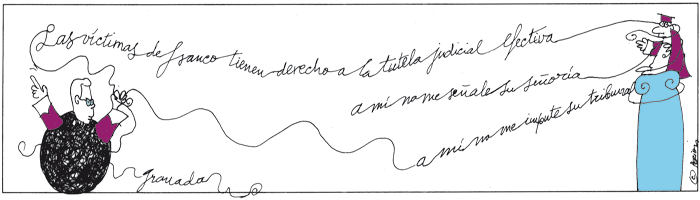 Las víctimas de franco tienen derecho a la tutela judicial efectiva
a mí no me señale su señoría
a mí no me impute su tribunal
granados